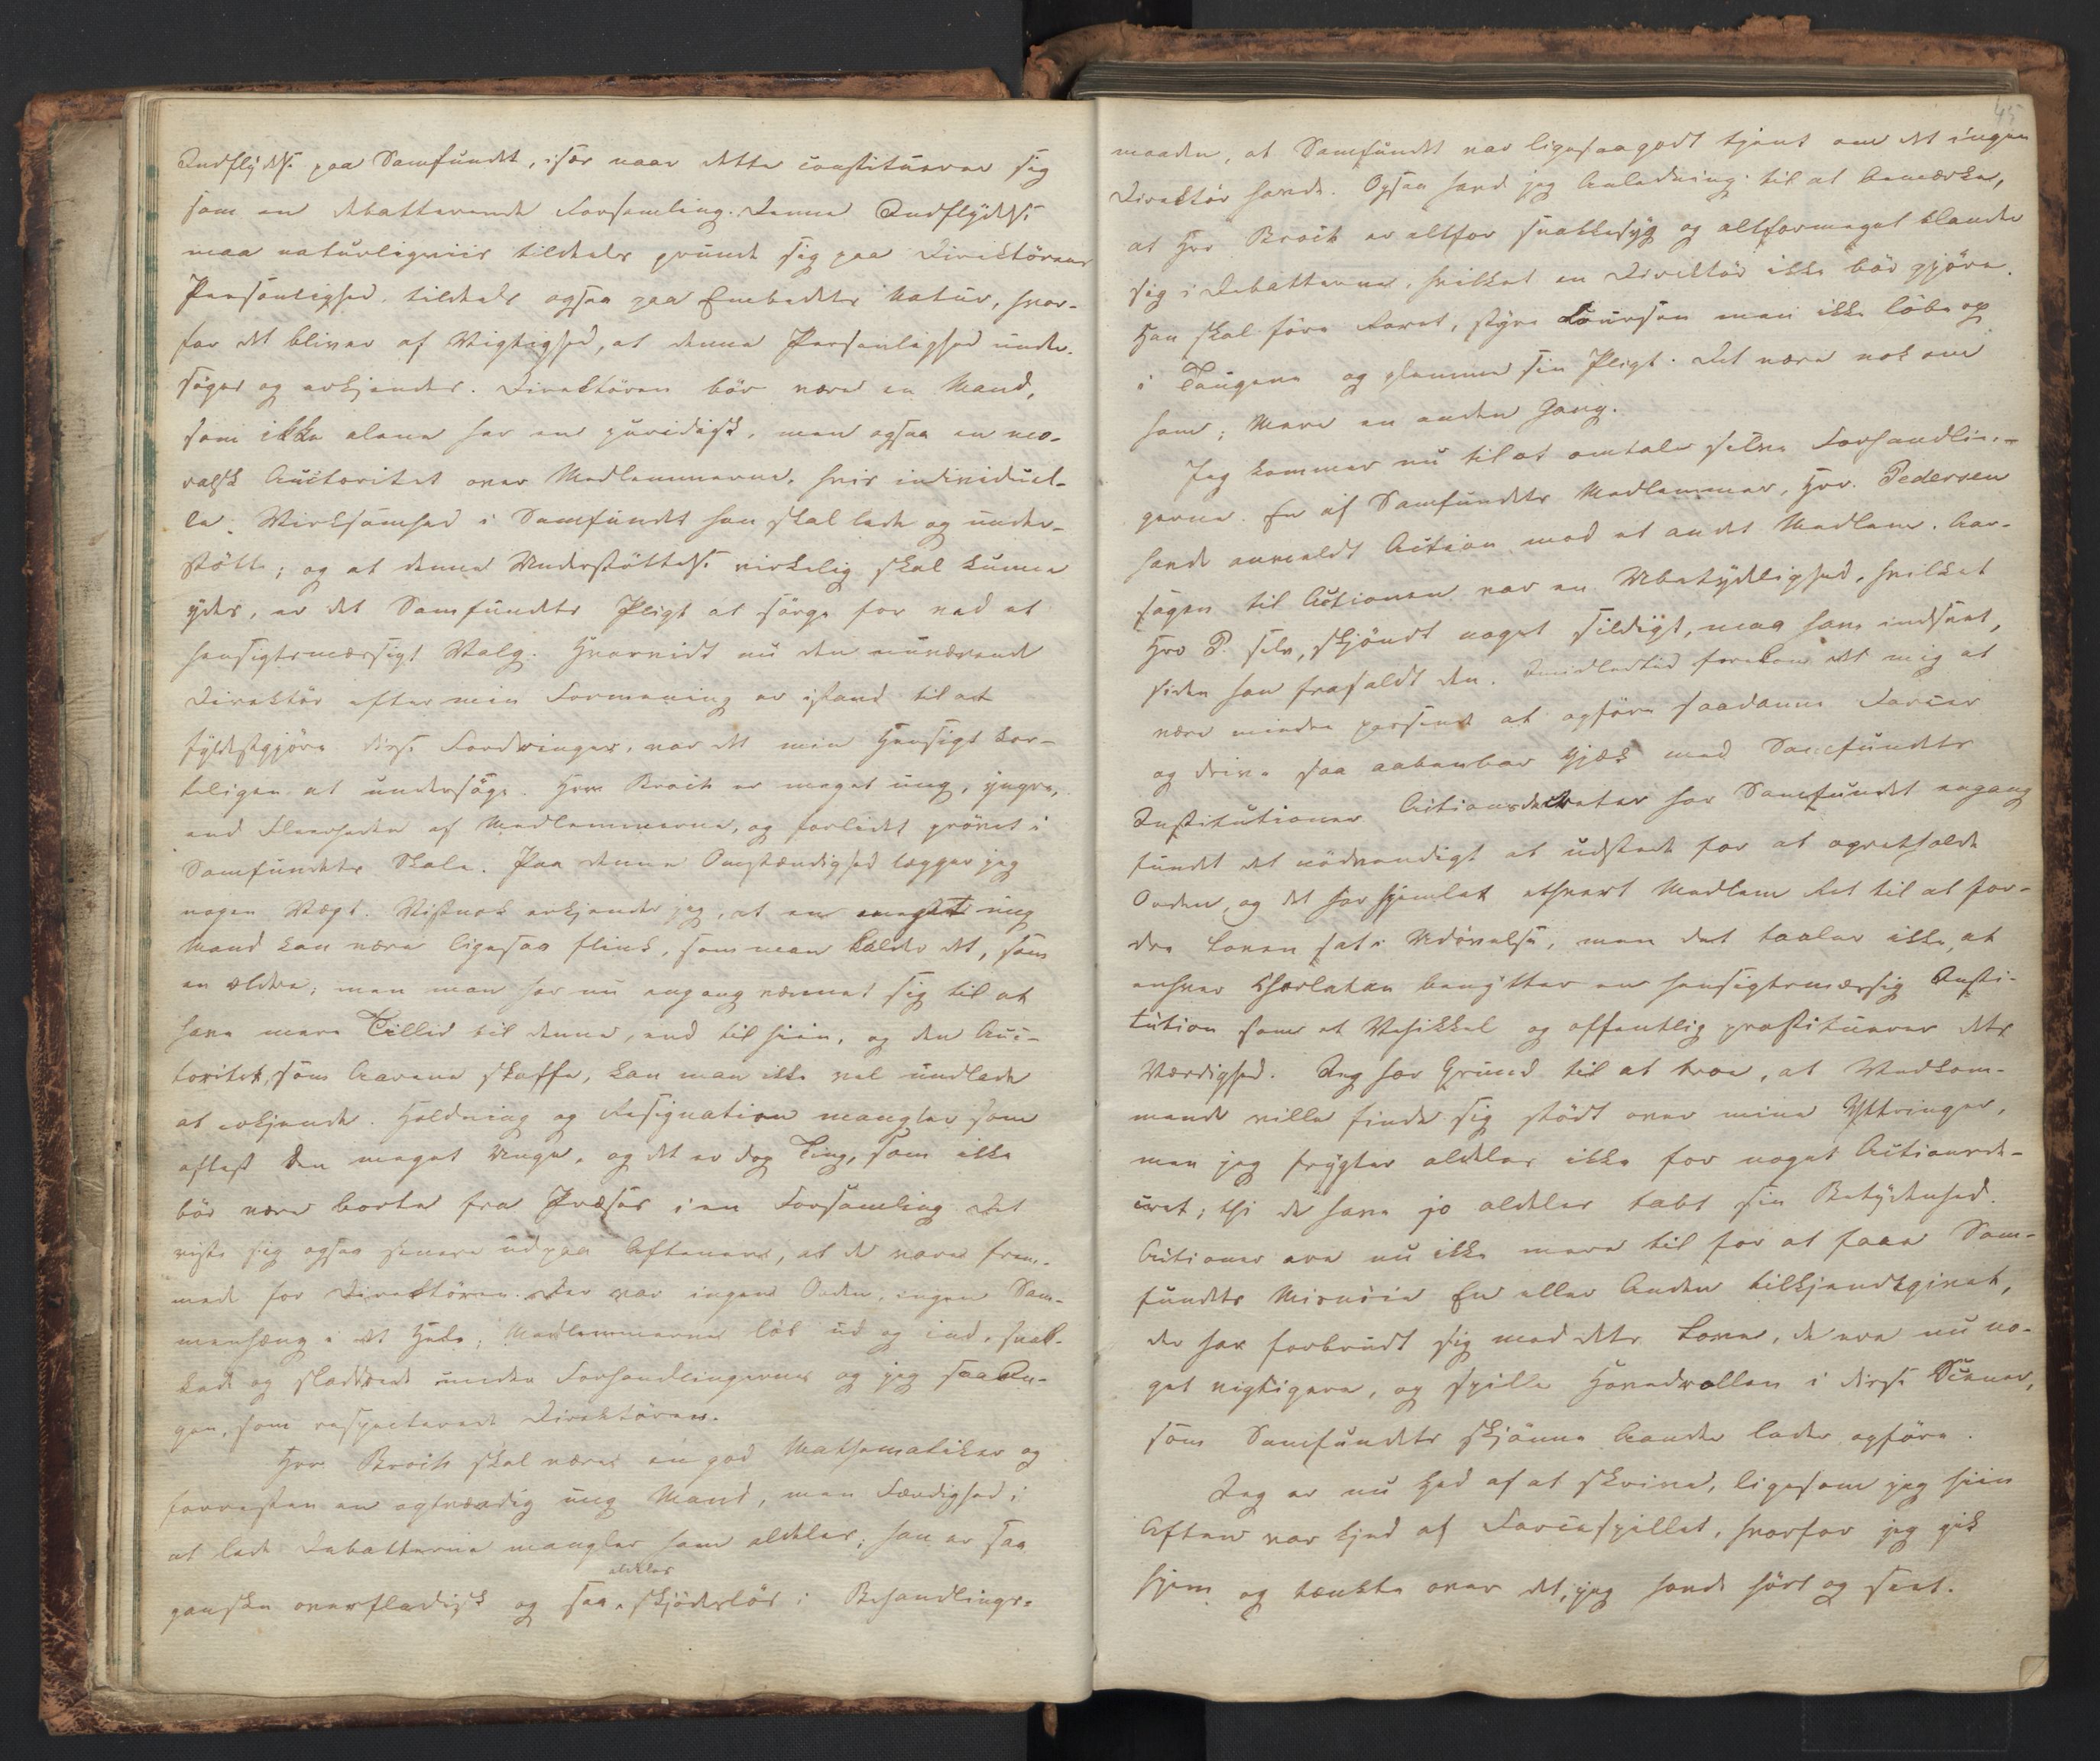 Indflydelse paa Samfundet, især naar dette constituerer sig
som en debatterende Forsamling. Denne Indflydelse
maa naturligviis tildeels grunde sig paa Direktörens
Personlighed, tildeels ogsaa paa Embedets Natur, hvor-
for det bliver af Vigtighed, at denne Personlighed under-
söges og erkjendes. Direktören bör være en Mand,
som ikke alene har en juridisk, men ogsaa en mo-
ralsk Auctoritet over Medlemmerne, hvis individuel-
le Virksomhed i Samfundet han skal lede og under-
stötte; og at denne Understöttelse virkelig skal kunne
ydes, er det Samfundets Pligt at sörge for ved et
hensigtsmæssigt Valg. Hvorvidt nu den nuværende
Direktör efter min Formening er istand til at
fyldestgjöre disse Fordringer, var det min Hensigt kor-
teligen at undersöge. Herr Broch er meget ung, yngre,
end Fleerheden af Medlemmerne, og forlidet prövet i
Samfundets Skole. Paa denne Omstændighed lægger jeg
nogen Vægt. Vistnok erkjender jeg, at en meget ung
Mand kan være ligesaa flink, som man kalder det, som
en ældre; men man har nu engang vænnet sig til at
have mere Tillid til denne, end til hiin, og den Auc-
toritet, som Aarene skaffe, kan man ikke vel undlade
at erkjende. Holdning og Resignation mangler som
oftest den meget Unge, og det er dog Ting, som ikke
bör være borte fra Præses i en Forsamling. Det
viste sig ogsaa senere udpaa Aftenen, at de vare frem-
mede for Direktören. Der var ingen Orden, ingen Sam-
menhæng i det Hele; Medlemmerne löb ud og ind, snak-
kede og sladdrede under Forhandlingerne og jeg saa In-
gen, som respecterede Direktören.
Herr Broch skal være en god Mathematiker og
forresten en agtværdig ung Mand, men Færdighed i
at lede Debatterne mangler ham aldeles; han er saa
ganske overfladisk og saa aldeles skjödeslös i Behandlings-
45
maaden, at Samfundet var ligesaagodt tjent om det ingen
Direktör havde. Ogsaa havd jeg Anledning til at bemærke,
at Hrr Broch er altfor snakkesyg og altformeget blander
sig i Debatterne, hvilket en Direktör ikke bör gjöre.
Han skal före Roret, styre Coursen men ikke löbe op
i Tougene og glemme sin Pligt. Det være nok om
ham; Mere en anden Gang.
Jeg kommer nu til at omtale selve Forhandlin-
gerne. En af Samfundets Medlemmer, Hrr. Pedersen
havde anmeldt Action mod et andet Medlem. Aar-
sagen til Actionen var en Ubetydelighed, hvilket
Hrr P. selv, skjöndt noget sildigt, maa have indseet,
siden han frafaldt den. Imidlertid forekom det mig at
være mindre passende at opföre saadanne Farcer
og drive saa aabenbar Gjæk med Samfundets
Institutioner. Actionsdekreter har Samfundet engang
fundet det nödvendigt at udstede for at opretholde
Orden, og det har hjemlet ethvert Medlem Ret til at for-
dre Loven sat i Udövelse, men det taaler ikke, at
enhver Charlatan benytter en hensigtsmæssig Insti-
tution som et Vehikkel og offentlig prostituerer dets
Værdighed. Jeg har Grund til at troe, at Vedkom-
mende ville finde sig stödt over mine Yttringer,
men jeg frygter aldeles ikke for noget Actionsde-
cret; thi de have jo aldeles tabt sin Betydenhed.
Actioner ere nu ikke mere til for at faae Sam-
fundets Misnöie En eller Anden tilkjendegivet,
der har forbrudt sig mod dets Love, de ere nu no-
get vigtigere, og spille Hovedrollen i disse Scener,
som Samfundets skjönne Aander lader opföre.
Jeg er nu kjed af at skrive, ligesom jeg hiin
Aften var kjed af Farcespillet, hvorfor jeg gik
hjem og tænkte over det, jeg havde hört og seet.